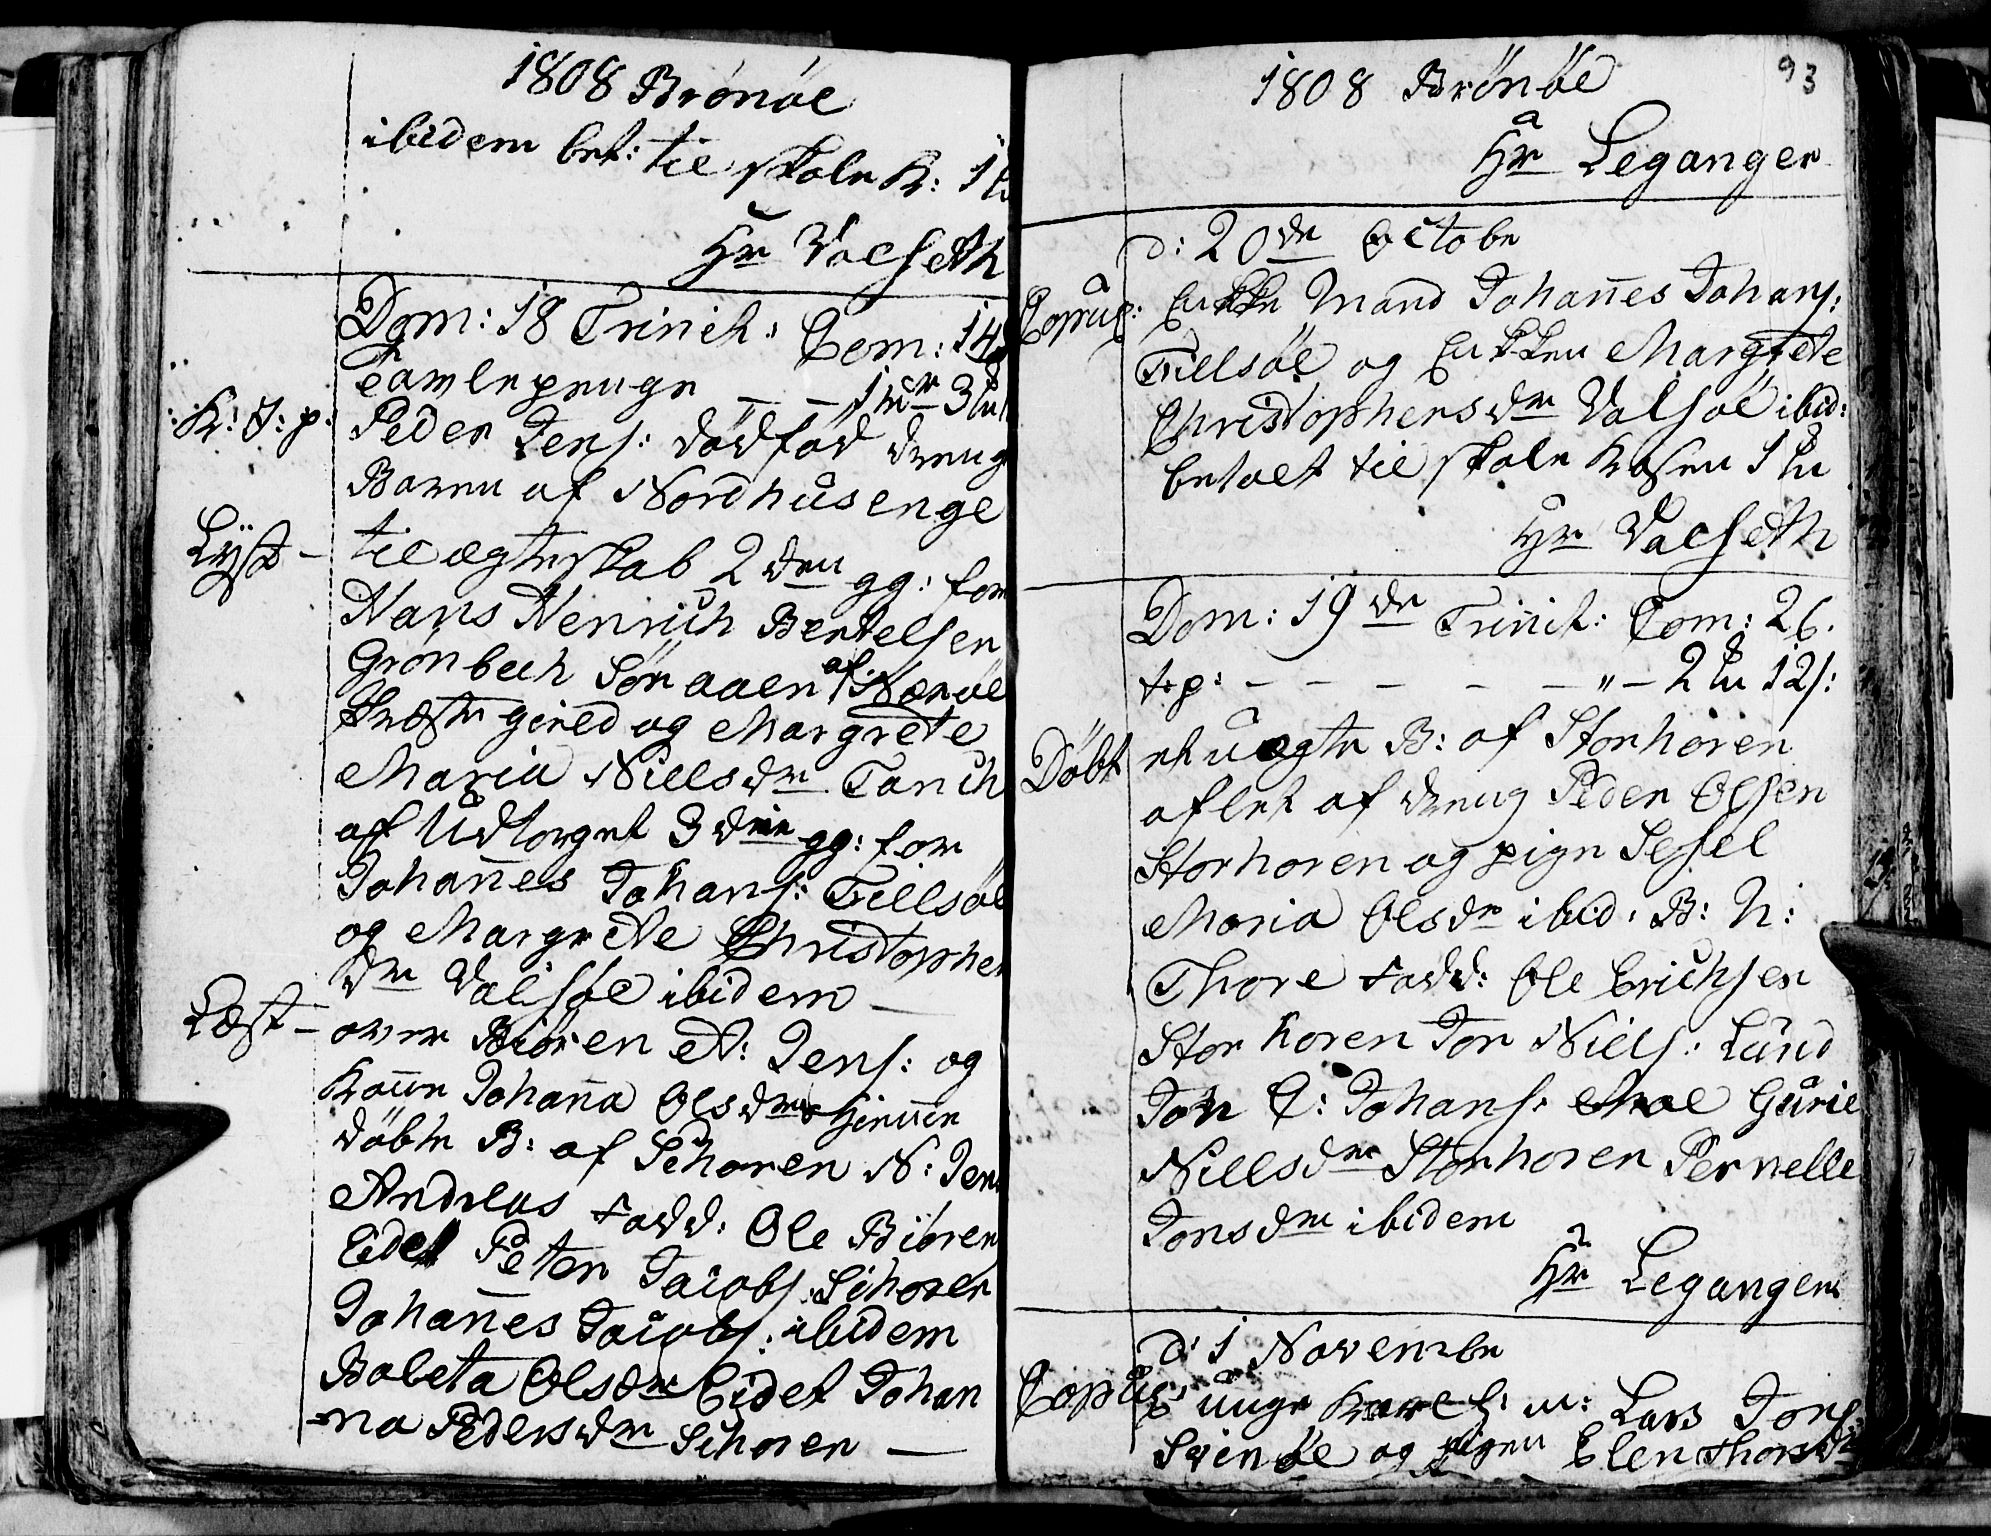 1808 Brönöe
ibidem bet: til skole K: 1
Hr Valseth
Dom: 18 Trinit: Com: 14
Tavlepenge — — 3
K: I: p: Peder Jens: dödfød dreng
Baren af Nordhusenge
Lyst — til ægteskab 2den gg: for
Hans Henrich Bertelsen
Grönbech Söraaen af Nærøe
Præstegield og Margrete
Maria Nielsdr Tanch
af Udtorget 3die gg: for
Johannes Johans: Tillsöe
og Margrete Christopher
dr Valsöe ibidem —
Læst — over Biören A: Jens: og
Kone Johanna Olsdr hiemme
döbte B: af Sehoren N: Jens
Andreas Fadd: Ole Biören
Eidet Peter Jacobs: Sihoren
Johannes Jacobs: ibidem
Baleta Olsdr Eidet Johan
-na Pedersdr Sihoren —
1808 Brönöe
93
Hr Leganger
d: 20de Octobr
Copul: Enke Mand Johannes Johans:
Tillsöe og Enken Margrete
Christophersdr Valsöe ibid:
betalt til skole Kasen 1
Hr Valseth
Dom: 19de Trinit: Com: 26.
t:p: — — — — — " — 2 12s:
Döbt et uægte B: af Storhoren
aflet af dreng Peder Olsen
Storhoren og pige Sesel
Maria Olsdr ibid: B: N:
Thore Fadd: Ole Erichsen
Storhoren Jon Niels: Lund
Jon C: Johans: Moe Gurie
Nielsdr Storhoren Pernelle
Jonsdr ibidem
Hr Leganger
d: 1 Novembr
Copul: unge Karl Lars Jons
Svinöe og pigen Elen Thorsdr